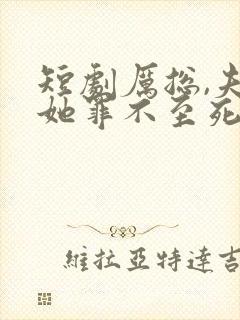 短劇厲總,夫
她罪不至死
維拉亞特達吉